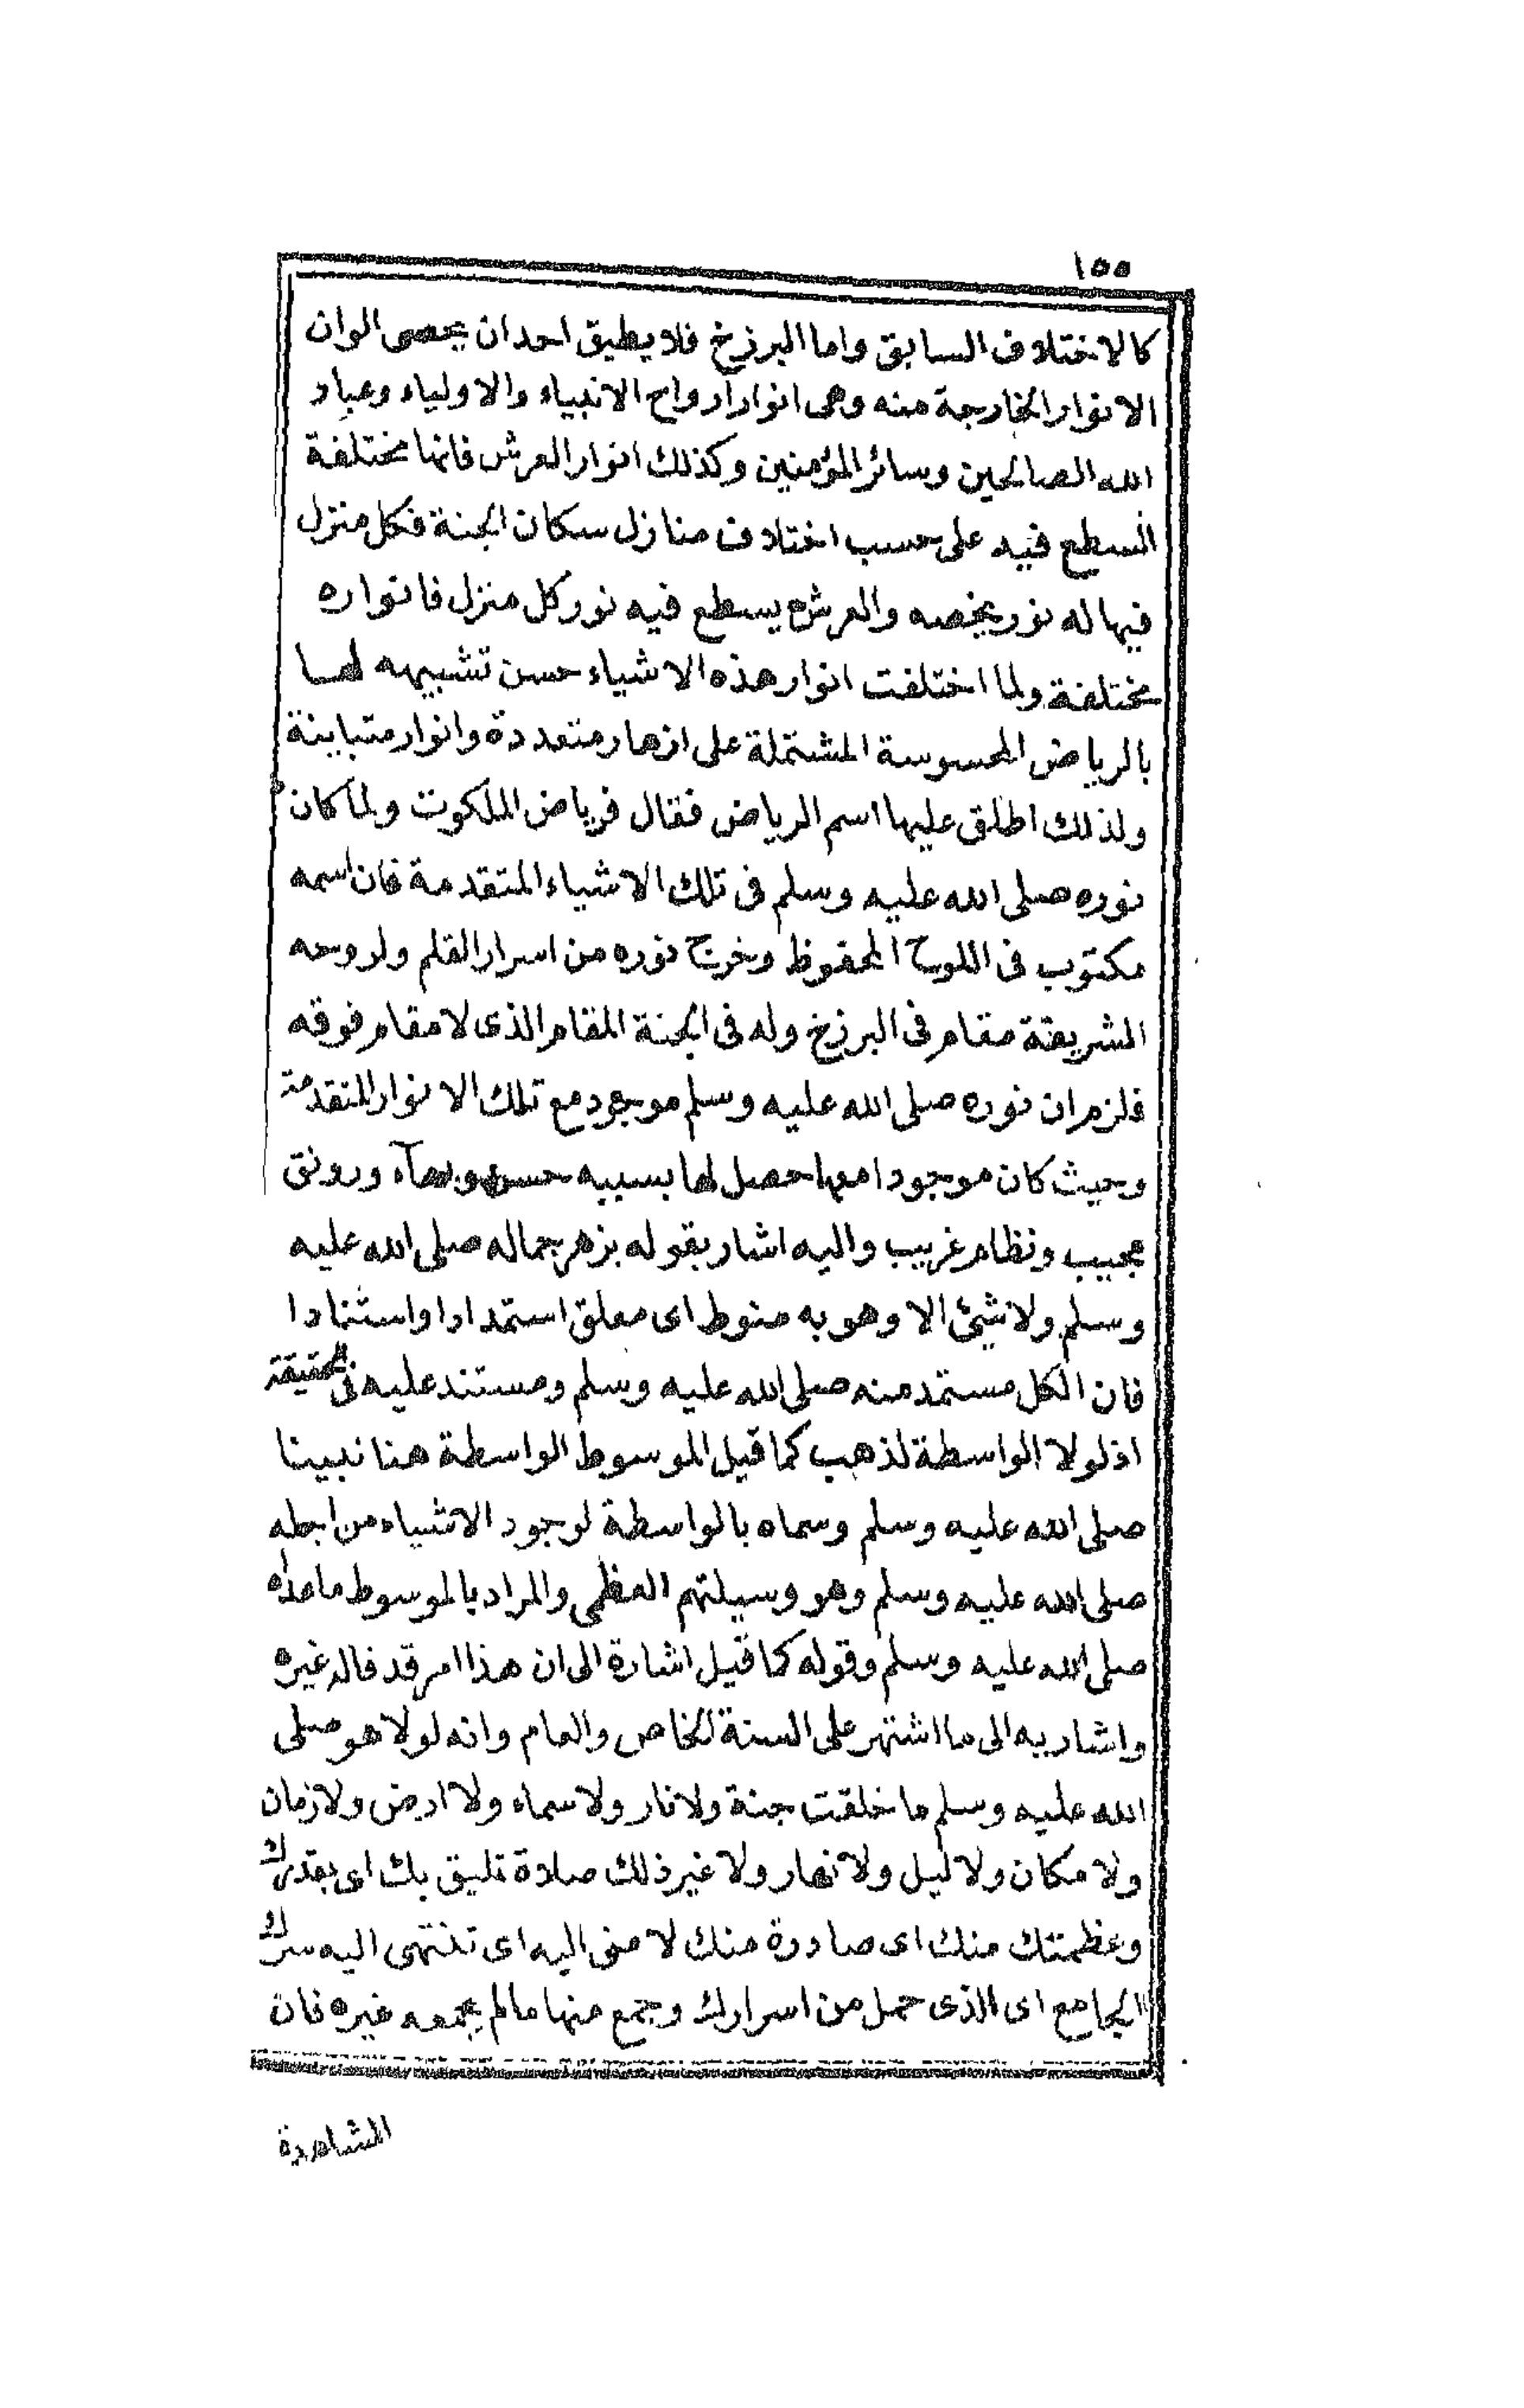 ١٥٥
كالاختلاف السابق واما البرزخ فلا يطيق احد ان يحصى الوان
الانوار الخارجة منه وهى انوار ارواح الانبياء والاولياء وعباد
الله الصالحين وسائر المؤمنين وكذلك انوار العرش فانها مختلفة
السطع فيه على حسب اختلاف منازل سكان الجنة فكل منزل
فيها له نور يخصه والعرش يسطع فيه نور كل منزل فانواره
مختلفة ولما اختلفت انوار هذه الاشياء حسن تشبيهه لها
بالرياض المحسوسة المشتملة على ازهار متعددة وانوار متباينة
ولذلك اطلق عليها اسم الرياض فقال فرياض الملكوت ولما كان
نوره صلى الله عليه وسلم فى تلك الاشياء المتقدمة فان اسمه
مكتوب فى اللوح المحفوظ وخرج نوره من اسرار القلم ولروحه
الشريفة مقام فى البرزخ وله فى الجنة المقام الذى لا مقام فوقه
فلزم ان نوره صلى الله عليه وسلم موجود مع تلك الانوار المتقدمة
وحيث كان موجودا معها حصل لها بسببه حسن وبهآء ورونق
عجيب ونظام غريب واليه اشار بقوله بزهر جماله صلى الله عليه
وسلم ولا شئ الا وهو به منوط اى معلق استمدادا واستنادا
فان الكل مستمد منه صلى الله عليه وسلم ومستند عليه فى الحقيقة
اذ لولا الواسطة لذهب كما قيل الموسوط الواسطة هنا نبينا
صلى الله عليه وسلم وسماه بالواسطة لوجود الاشياء من اجله
صلى الله عليه وسلم وهو وسيلتهم العظمى والمراد بالموسوط ماعداه
صلى الله عليه وسلم وقوله كما قيل اشارة الى ان هذا امر قد قاله غيره
واشار به الى ما اشتهر على السنة الخاص والعام وانه لولا هو صلى
الله عليه وسلم ما خلقت جنة ولا نار ولا سماء ولا ارض ولا زمان
ولا مكان ولا ليل ولا نهار ولا غير ذلك صلاة تليق بك اى بقدرك
وعظمتك منك اى صادرة منك لا من اليه اى تنتهى اليه سرك
الجامع اى الذى حمل من اسرارك وجمع منها مالم يجمعه غيره فان
المشاهدة